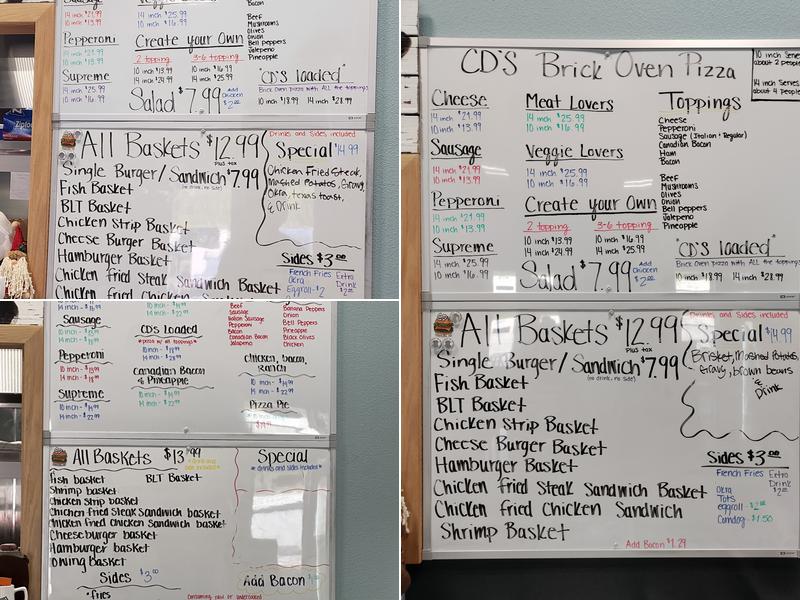 Sausage
14 inch $21.99
10 inch $13.99
Pepperoni
14 inch $21.99
10 inch $13.99
Supreme
14 inch $25.99
10 inch $16.99
Veggie Lovers
14 inch $25.99
10 inch $16.99
Create your Own
2 topping 3-6 topping
10 inch $13.99 10 inch $16.99
14 inch $24.99 14 inch $25.99
Salad $7.99 Add Chicken $2.00
Bacon
Beef
Mushrooms
Olives
Onion
Bell peppers
Jalepeno
Pineapple
"CD'S loaded"
Brick Oven Pizza with ALL the toppings
10 inch $18.99 14 inch $28.99
All Baskets $12.99
Plus tax
Single Burger/Sandwich $7.99
(no drink, no side)
Fish Basket
BLT Basket
Chicken Strip Basket
Cheese Burger Basket
Hamburger Basket
Chicken fried Steak Sandwich Basket
Chicken fried Chicken Sandwich
Drinks and Sides, included
Special $14.99
Chicken Fried Steak,
Mashed Potatos, Gravy,
Okra, texas toast,
& Drink
Sides $3.00
French Fries
Okra
Eggroll-$2
Extra
Drink
$2.00
CD'S Brick Oven Pizza
10 inch Serves
about 2 people
14 inch Serves
about 4 people
Cheese
14 inch $21.99
10 inch $13.99
Sausage
14 inch $21.99
10 inch $13.99
Pepperoni
14 inch $21.99
10 inch $13.99
Supreme
14 inch $25.99
10 inch $16.99
Meat Lovers
14 inch $25.99
10 inch $16.99
Veggie Lovers
14 inch $25.99
10 inch $16.99
Create your Own
2 topping 3-6 topping
10 inch $13.99 10 inch $16.99
14 inch $24.99 14 inch $25.99
Salad $7.99 Add Chicken $2.00
Toppings
Cheese
Pepperoni
Sausage (Italian + Regular)
Canadian Bacon
Ham
Bacon
Beef
Mushrooms
Olives
Onion
Bell peppers
Jalepeno
Pineapple
"CD'S loaded"
Brick Oven Pizza with ALL the toppings
10 inch $18.99 14 inch $28.99
All Baskets $12.99
Plus tax
Single Burger/Sandwich $7.99
(no drink, no side)
Fish Basket
BLT Basket
Chicken Strip Basket
Cheese Burger Basket
Hamburger Basket
Chicken fried Steak Sandwich Basket
Chicken fried Chicken Sandwich
Shrimp Basket
Add Bacon $1.29
Drinks and Sides, included
Special $14.99
Brisket, Mashed Potatos,
Gravy, brown beans
& Drink
Sides $3.00
French Fries
Okra
Tots
eggroll-$2.00
Corndog-$1.50
Extra
Drink
$2.00
Sausage
Pepperoni
Supreme
CDS Loaded
*pizza w/ all toppings*
Canadian Bacon
& Pineapple
Beef
Sausage
Italian Sausage
Pepperoni
Bacon
Canadian Bacon
Jalapeno
Banana Peppers
Onion
Bell Peppers
Pineapple
Black Olives
Chicken
Chicken, bacon,
Ranch
Pizza Pie
All Baskets $13.99
Fish basket BLT Basket
Shrimp basket
Chicken strip basket
Chicken fried Steak Sandwich basket
Chicken fried Chicken Sandwich basket
Cheeseburger basket
Hamburger basket
Sides $3.00
*fries
Special
*drinks and sides included*
Add Bacon